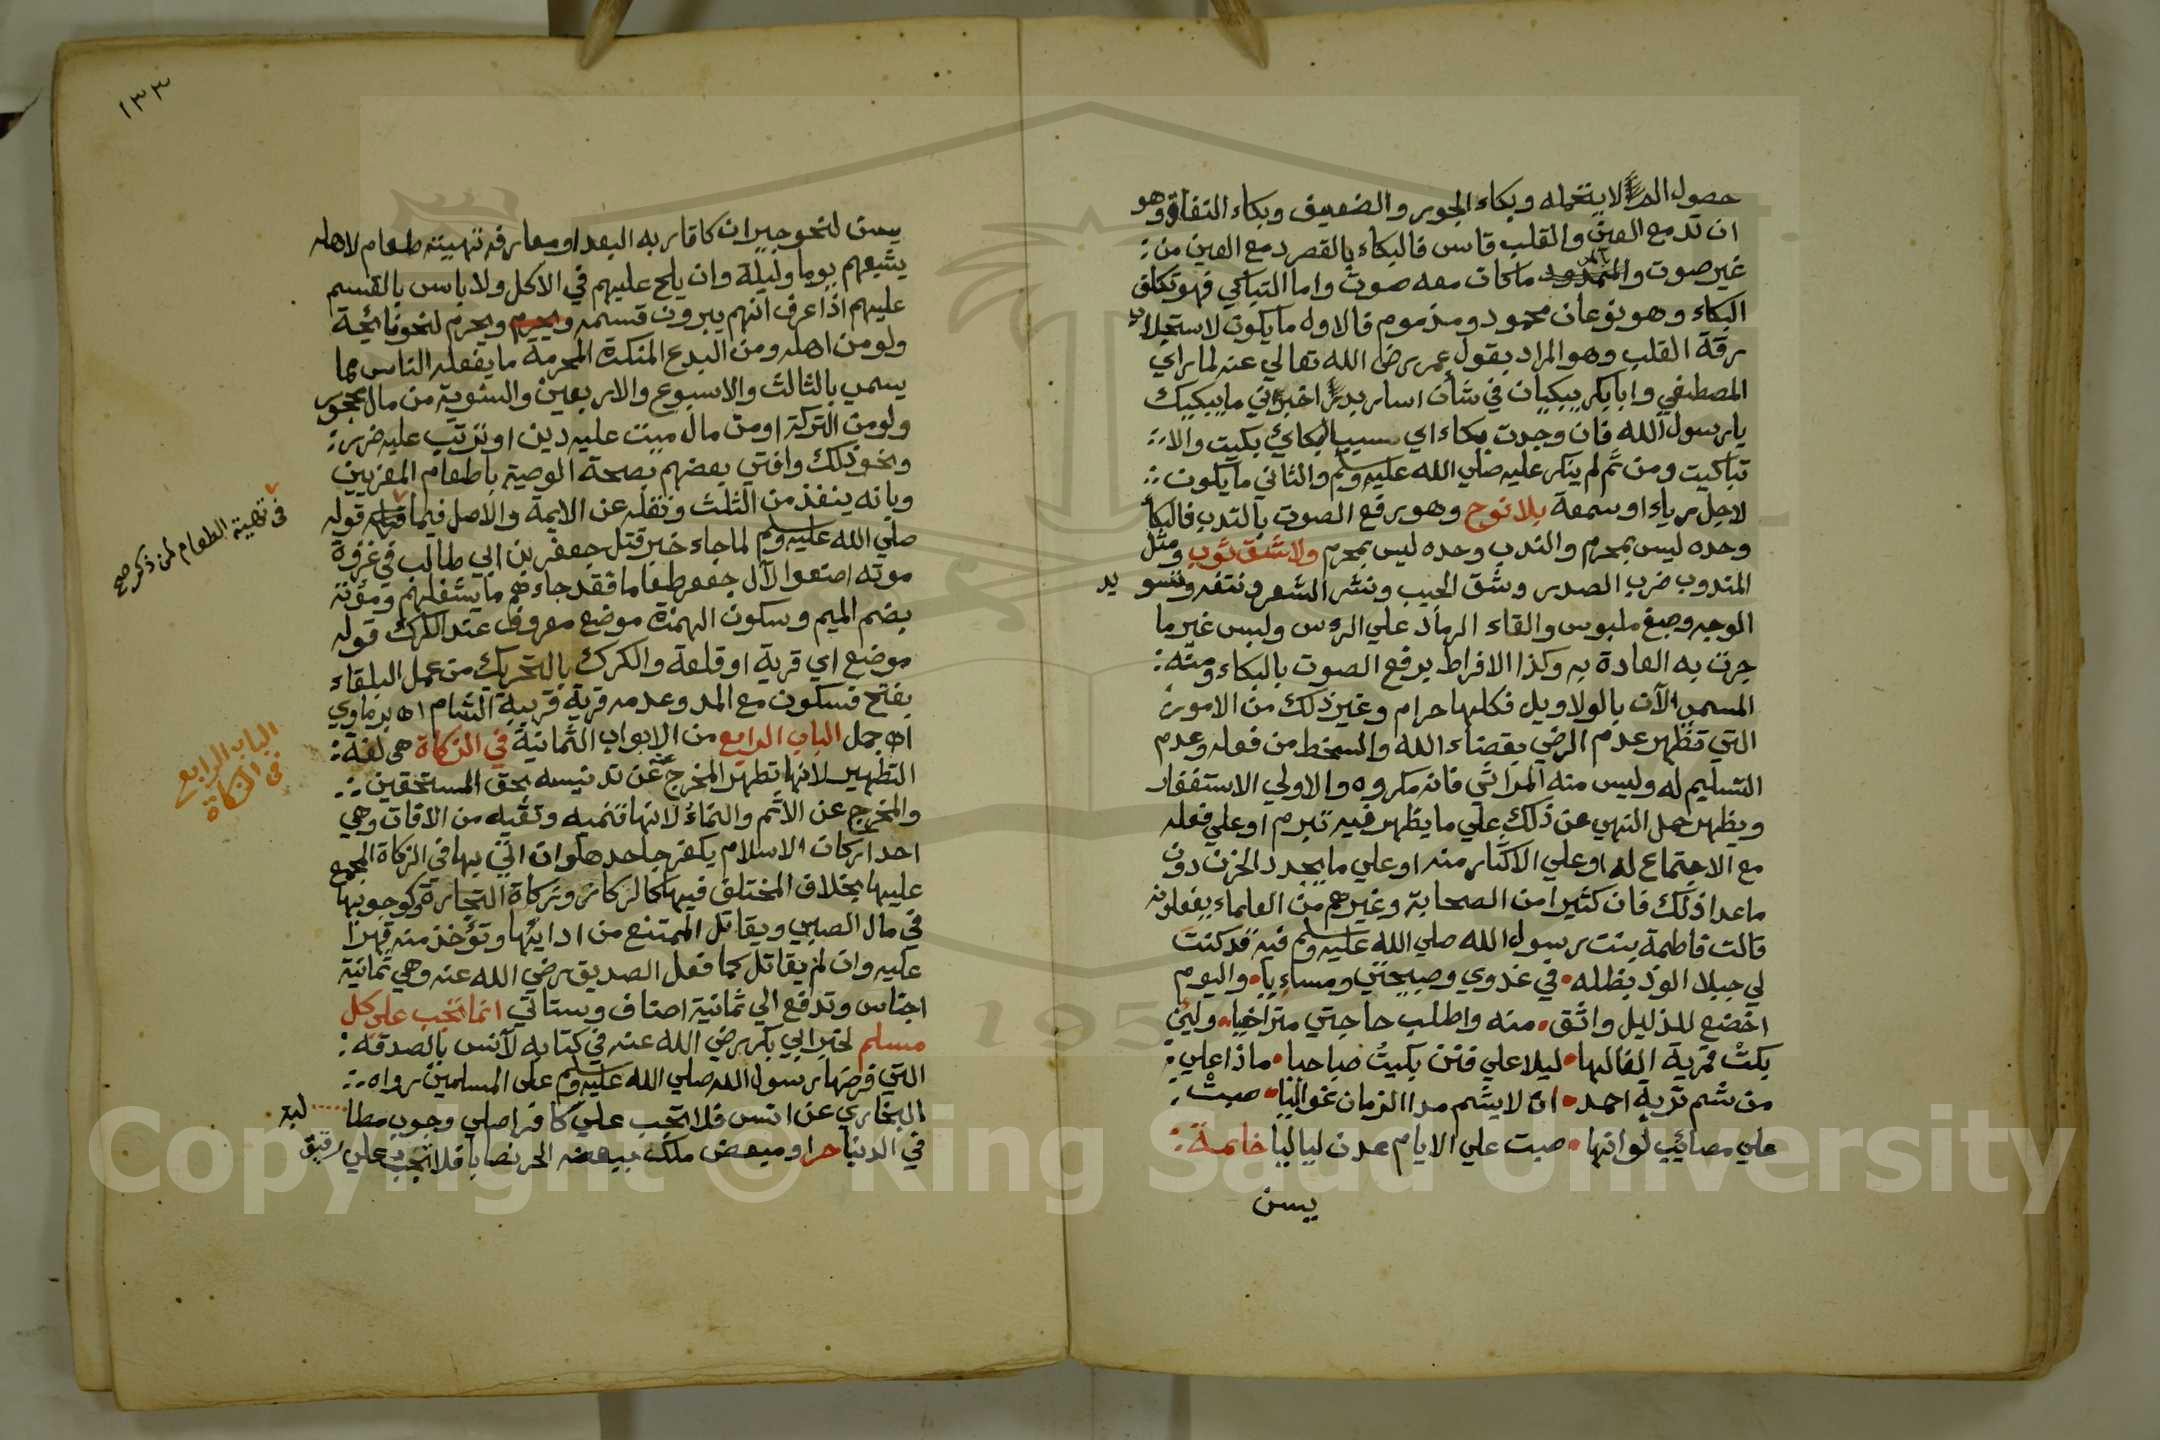 حصول الم لا يتحمله وبكاء الجور والضعيف وبكاء النفاق وهو
ان تدمع العين والقلب قاس فالبكاء بالقصر دمع العين من
غير صوت والممدود ما كان معه صوت واما التباكي فهو تكلف
البكاء وهو نوعان محمود ومذموم فالاول ما يكون لاستجلاب
رقة القلب وهو المراد بقول عمر رضي الله تعالي عنه لما راي
المصطفي وابا بكر يبكيان في شأن اساري بدر اخبرني ما يبكيك
يا رسول الله فان وجدت بكاء اي سبب البكائي بكيت والا
تباكيت ومن ثم لم ينكر عليه صلي الله عليه وسلم والثاني ما يكون
لاجل رياء او سمعة بلا نوح وهو رفع الصوت بالندب فالبكا
وحده ليس بمحرم والندب وحده ليس بمحرم ولا شق ثوب ومثل
المندوب ضرب الصدر وشق الجيب ونشر الشعر ونتفه وتسويد
الوجه وصبغ ملبوس والقاء الرماد علي الروس ولبس غير ما
جرت به العادة به وكذا الافراط برفع الصوت بالبكاء ومنه
المسمي الآن بالولاويل فكلها حرام وغير ذلك من الامور
التي تظهر عدم الرضي بقضاء الله والسخط من فعله وعدم
التسليم له وليس منه المراثي فانه مكروه والاولي الاستغفار
ويظهر حمل النهي عن ذلك علي ما يظهر فيه تبرم او علي فعله
مع الاجتماع له او علي الاكثار منه او علي ما يجدد الحزن دون
ما عدا ذلك فان كثيرا من الصحابة وغيرهم من العلماء يفعلونه
قالت فاطمة بنت رسول الله صلي الله عليه وسلم فيه قد كنت
لي جبلا الوذ بظله في غدوي وصبيحتي ومساءيا واليوم
اخضع للذليل واتق منه واطلب حاجتي متراخيا ولئن
بكت قمرية الفالها ليلا علي فنن بكيت صباحيا ماذا علي
من شم تربة احمد ان لا يشم مدا الزمان غواليا صبت
علي مصائب لو انها صبت علي الايام عدن لياليا خاتمة
يسن
١٣٣
يسن لنحو جيران كاقاربه البعدا ومعارفه تهيئة طعام لاهله
يشبعهم يوما وليلة وان يلح عليهم في الاكل ولا باس بالقسم
عليهم اذا عرف انهم يبرون قسمه ويحرم ويحرم لنحو نائحة
ولو من اهله ومن البدع المنكرة المحرمة ما يفعله الناس مما
يسمي بالثالث والاسبوع والاربعين والسنوية من مال محجور
ولو من التركة او من مال ميت عليه دين او ترتب عليه ضرر
ونحو ذلك وافتي بعضهم بصحة الوصية باطعام المعزيين
وبانه ينفذ من الثلث ونقله عن الايمة والاصل فيما قبله قوله
صلي الله عليه وسلم لما جاء خبر قتل جعفر بن ابي طالب في غزوة
موته اصنعوا لآل جعفر طعاما فقد جاءهم ما يشغلهم ومؤتة
بضم الميم وسكون الهمزة موضع معروف عند الكرك قوله
موضع اي قرية او قلعة والكرك بالتحريك من عمل البلقاء
بفتح فسكون مع المد وعدمه قرية قريبة الشام اه برماوي
اه جمل الباب الرابع من الابواب الثمانية في الزكاة هي لغة
التطهير لانها تطهر المخرج عنه عن تدنيسه بحق المستحقين
والمخرج عن الاثم والنماء لانها تنميه وتقيه من الافات وهي
احد اركان الاسلام يكفر جاحدها وان اتي بها في الزكاة المجمع
عليها بخلاف المختلف فيها كالركاز وزكاة التجارة وكوجوبها
في مال الصبي ويقاتل الممتنع من ادائها وتؤخذ منه قهرا
عليه وان لم يقاتل كما فعل الصديق رضي الله عنه وهي ثمانية
اجناس وتدفع الي ثمانية اصناف وستاتي انما تجب علي كل
مسلم لخبر ابي بكر رضي الله عنه في كتابه لآنس بالصدقة
التي فرضها رسول الله صلي الله عليه وسلم علي المسلمين رواه
البخاري عن انس فلا تجب علي كافر اصلي وجوب مطالبة
في الدنيا حر او مبعض ملك ببعضه الحر نصابا فلا تجب علي رقيق
في تهيئة الطعام لمن ذكر صح
الباب الرابع
في الزكاة
Copyright © King Saud University
195